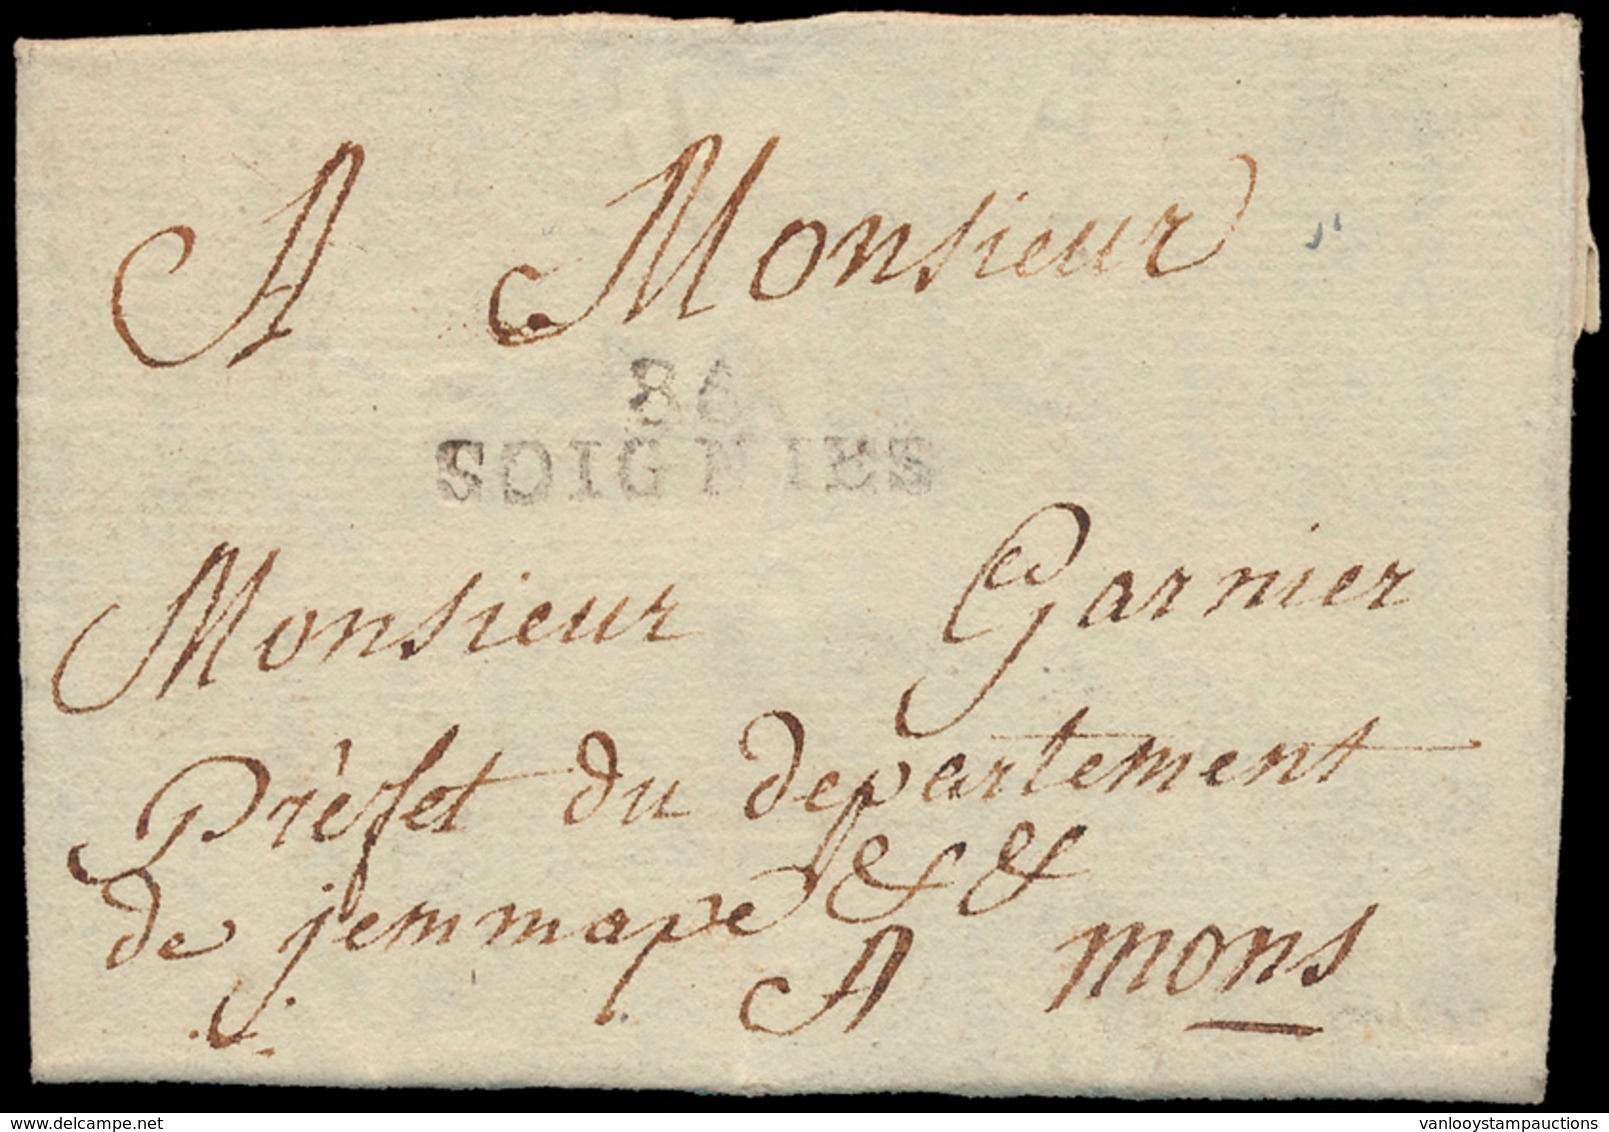 A Monsieur
86
SOIGNIES
Monsieur Garnier
Prèfet du departement
de jemmape & &
A mons
delcampe.net
vanlooystampauctions